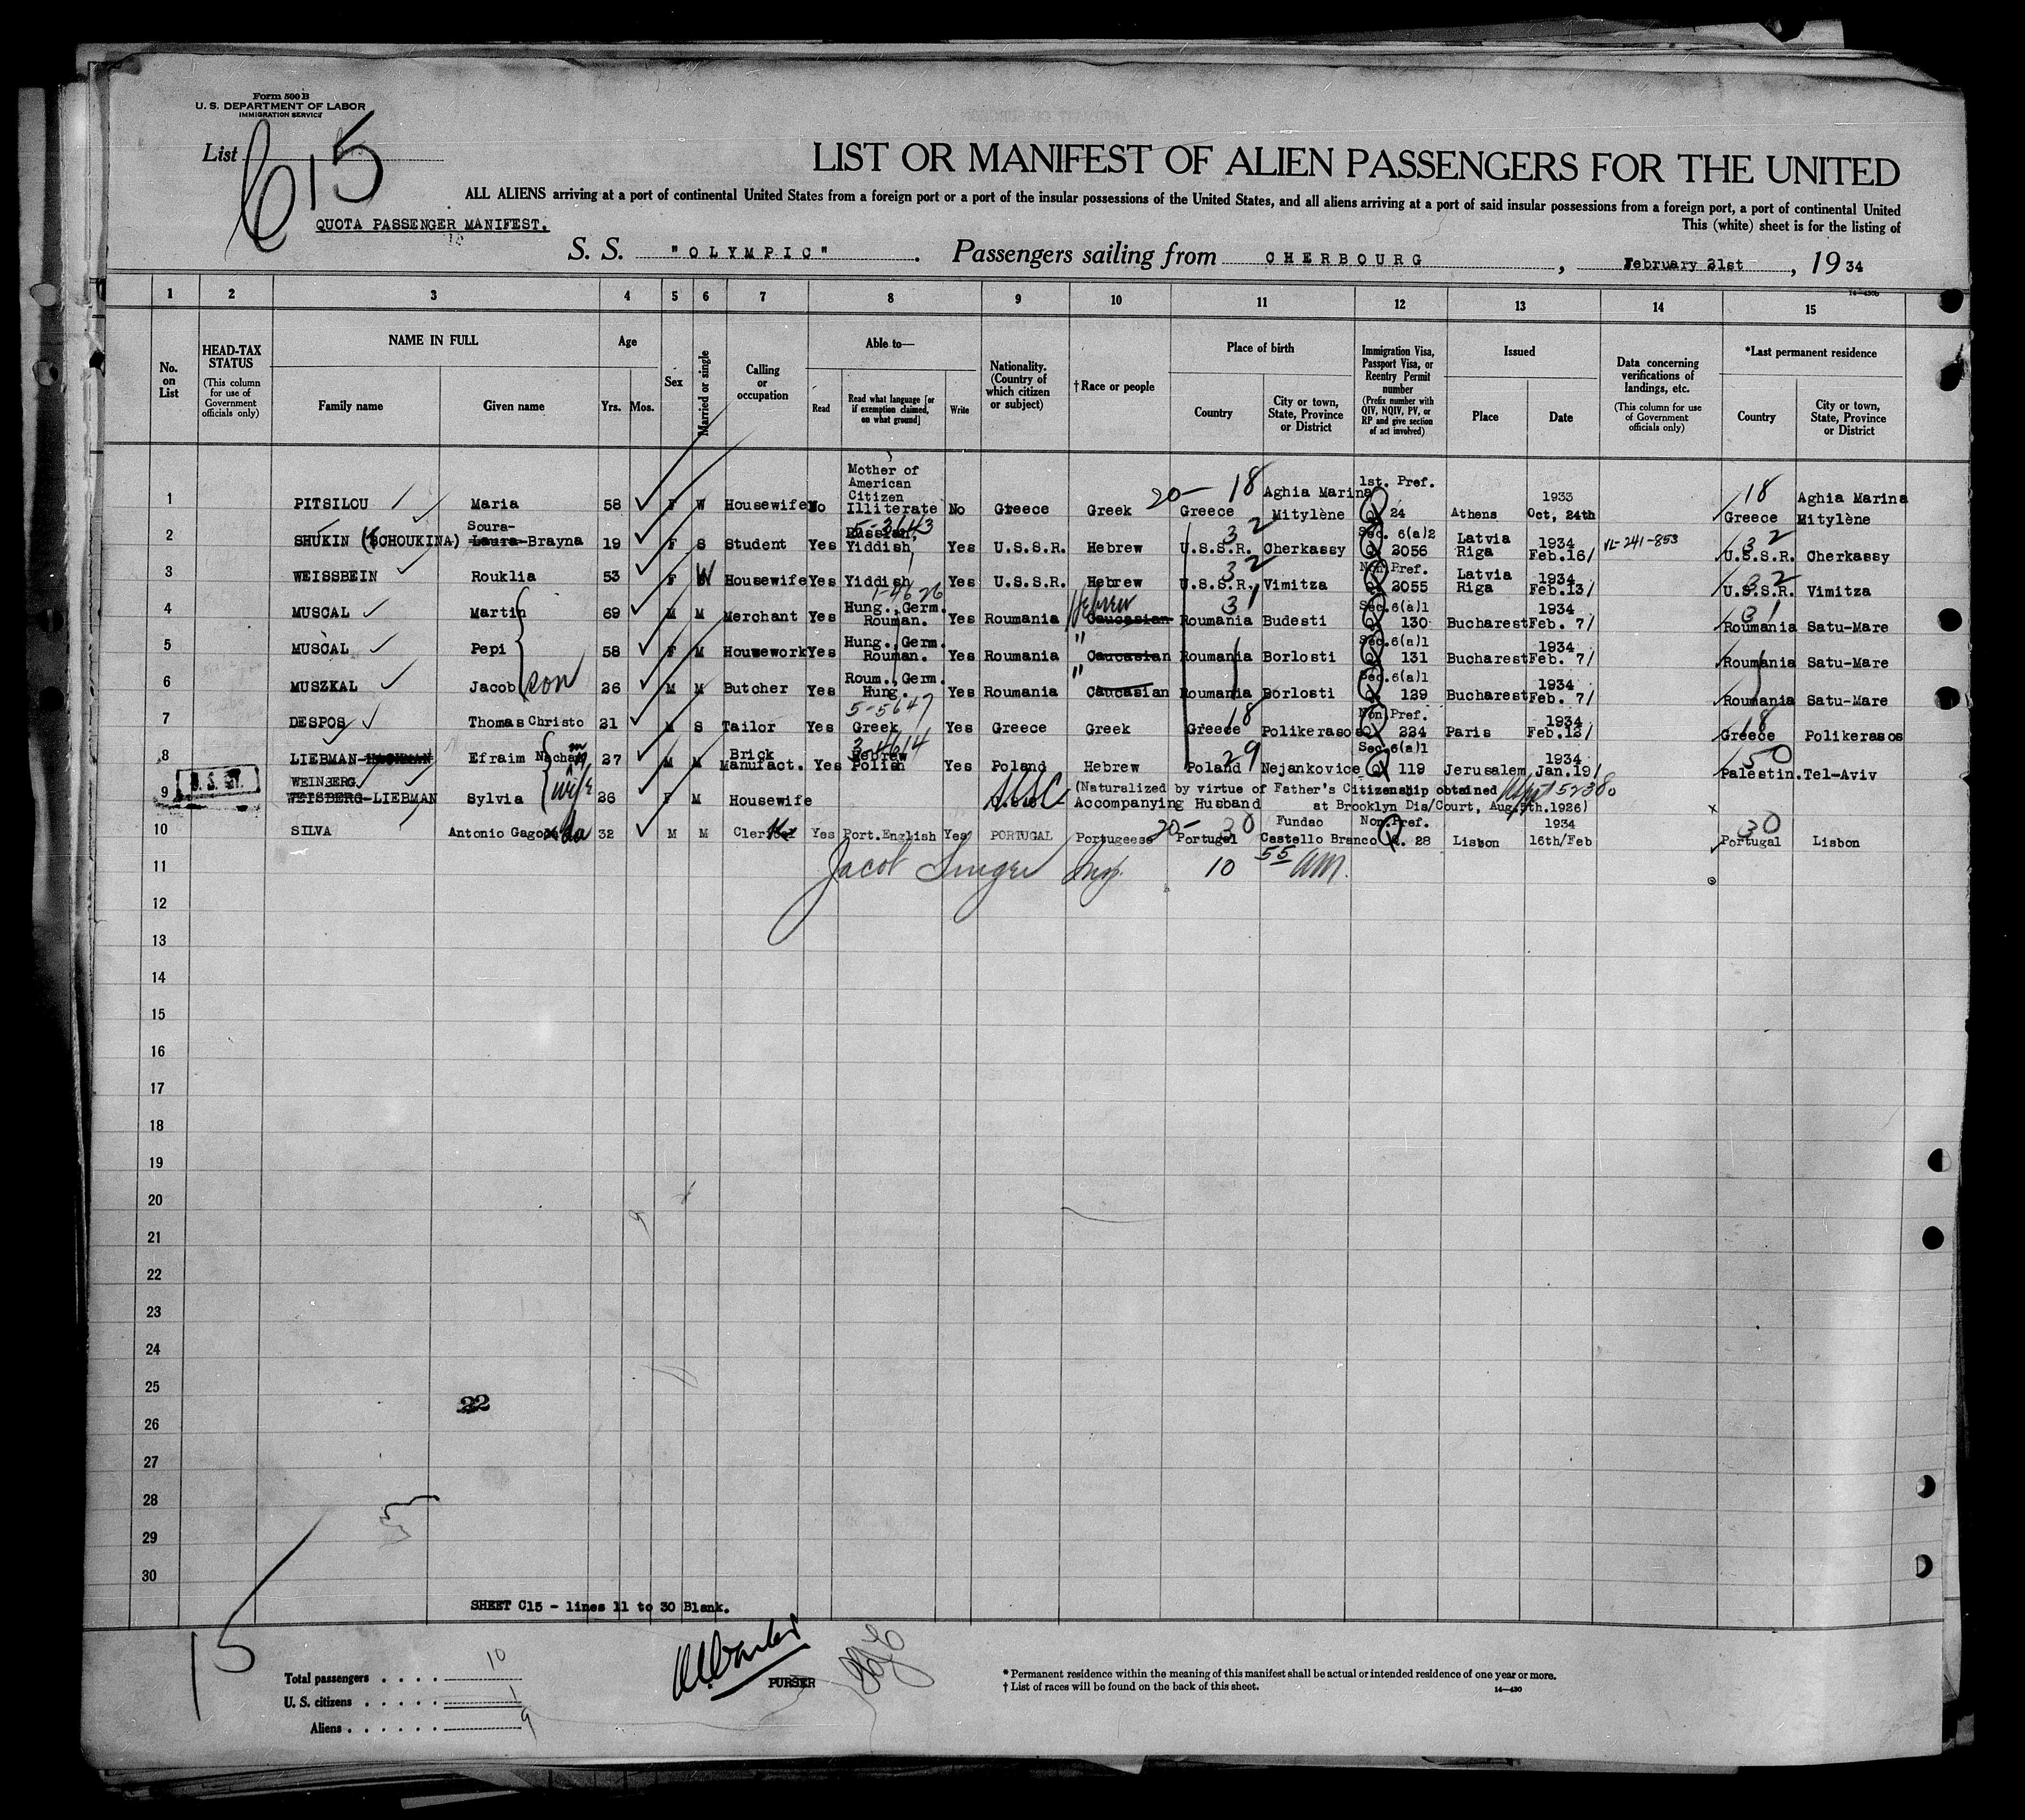 Form 500 B
U. S. DEPARTMENT OF LABOR
IMMIGRATION SERVICE
List C15
LIST OR MANIFEST OF ALIEN PASSENGERS FOR THE UNITED
ALL ALIENS arriving at a port of continental United States from a foreign port or a port of the insular possessions of the United States, and all aliens arriving at a port of said insular possessions from a foreign port, a port of continental United
QUOTA PASSENGER MANIFEST.
This (white) sheet is for the listing of
S. S. "OLYMPIC" . Passengers sailing from CHERBOURG , February 21st , 19 34
14—430b
1 2 3 4 5 6 7 8 9 10 11 12 13 14 15
No. on List
HEAD-TAX STATUS (This column for use of Government officials only)
NAME IN FULL
Family name Given name
Age
Yrs. Mos.
Sex
Married or single
Calling or occupation
Able to—
Read
Read what language [or if exemption claimed, on what ground]
Write
Nationality. (Country of which citizen or subject)
† Race or people
Place of birth
Country City or town, State, Province or District
Immigration Visa, Passport Visa, or Reentry Permit number (Prefix number with QIV, NQIV, PV, or RP and give section of act involved)
Issued
Place Date
Data concerning verifications of landings, etc. (This column for use of Government officials only)
*Last permanent residence
Country City or town, State, Province or District
1 PITSILOU Maria 58 F W Housewife No Mother of American Citizen Illiterate No Greece Greek 20- 18 Greece Aghia Marina Mitylène 1st. Pref. Q 24 Athens 1933 Oct, 24th 18 Greece Aghia Marina Mitylène
2 SHUKIN (SCHOUKINA) Soura- Laura-Brayna 19 F S Student Yes 5-3643 Russian, Yiddish Yes U.S.S.R. Hebrew 32 U.S.S.R. Cherkassy Sec. 6(a)2 Q 2056 Latvia Riga 1934 Feb.16/ VL-241-853 32 U.S.S.R. Cherkassy
3 WEISSBEIN Rouklia 53 F W Housewife Yes Yiddish Yes U.S.S.R. Hebrew 32 U.S.S.R. Vimitza Non.Pref. Q 2055 Latvia Riga 1934 Feb.13/ 32 U.S.S.R. Vimitza
4 MUSCAL Martin 69 M M Merchant Yes 1-4626 Hung., Germ. Rouman. Yes Roumania Hebrew Caucasian 31 Roumania Budesti Sec.6(a)1 Q 130 Bucharest 1934 Feb. 7/ 31 Roumania Satu-Mare
5 MUSCAL Pepi 58 F M Housework Yes Hung., Germ. Rouman. Yes Roumania " Caucasian Roumania Borlosti Sec.6(a)1 Q 131 Bucharest 1934 Feb. 7/ Roumania Satu-Mare
6 MUSZKAL Jacob son 26 M M Butcher Yes Roum., Germ. Hung. Yes Roumania " Caucasian Roumania Borlosti Sec.6(a)1 Q 129 Bucharest 1934 Feb. 7/ Roumania Satu-Mare
7 DESPOS Thomas Christo 21 M S Tailor Yes 5-5647 Greek Yes Greece Greek 18 Greece Polikerasos Non.Pref. Q 224 Paris 1934 Feb.12/ 18 Greece Polikerasos
8 LIEBMAN- Efraim Nachman 27 M M Brick Manufact. Yes Hebrew Polish Yes Poland Hebrew 29 Poland Nejankovice Sec.6(a)1 Q 119 Jerusalem 1934 Jan.19/ 50 Palestin. Tel-Aviv
9 WEINBERG WEISBERG-LIEBMAN Sylvia wife 26 F M Housewife USC (Naturalized by virtue of Father's Citizenship obtained
Accompanying Husband at Brooklyn Dis/Court, Aug.5th.1926) x
10 SILVA Antonio Gago da 32 M M Clerk Yes Port.English Yes PORTUGAL Portugeese 20- 30 Portugal Fundao Castello Branco Non.Pref. Q. 28 Lisbon 1934 16th/Feb 30 Portugal Lisbon
11 Jacob Singer Insp. 10 55 AM.
12
13
14
15
16
17
18
19
20
21
22
23
24
25
22
26
27
28
29
30
SHEET C15 - lines 11 to 30 Blank.
15
Total passengers . . . . 10
U. S. citizens . . . . . 1
Aliens . . . . . . 9
PURSER
* Permanent residence within the meaning of this manifest shall be actual or intended residence of one year or more.
† List of races will be found on the back of this sheet.
14—430